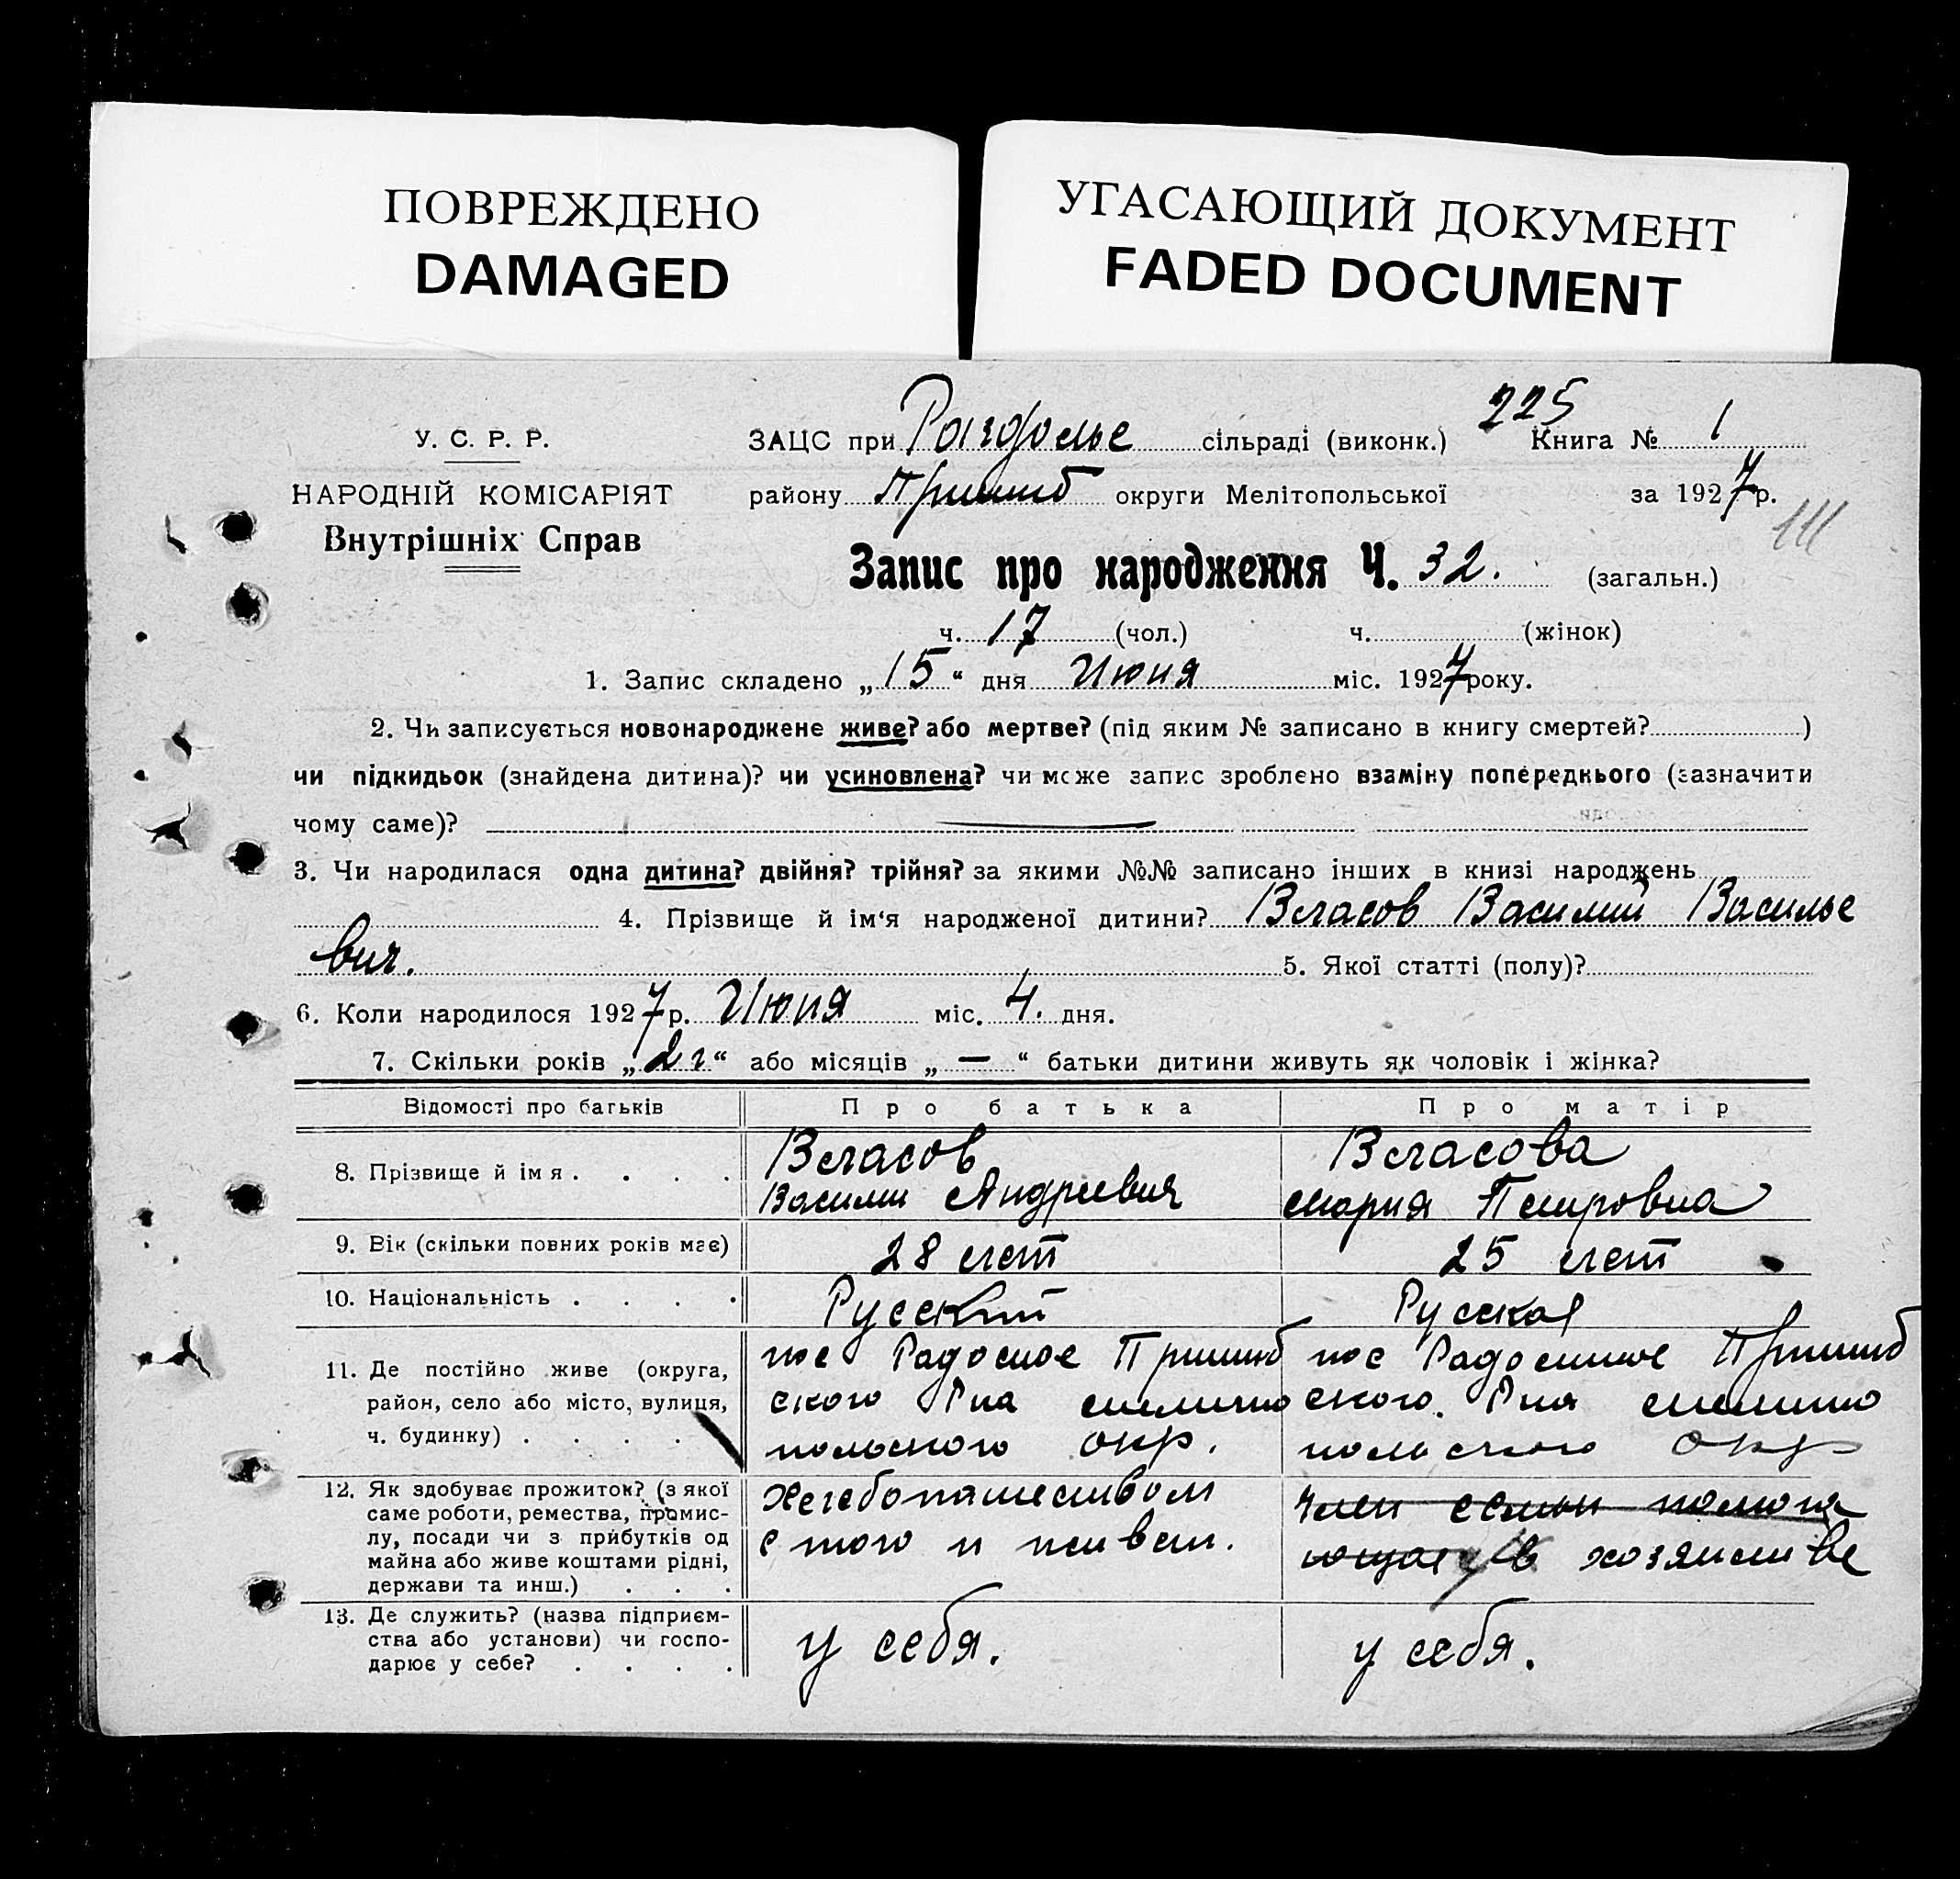 ПОВРЕЖДЕНО
DAMAGED
УГАСАЮЩИЙ ДОКУМЕНТ
FADED DOCUMENT
225
У. С. Р. Р.
ЗАЦС при Раздолье сільраді (виконк.) Книга № 1
НАРОДНІЙ КОМІСАРІЯТ
району Пришиб округи Мелітопольської за 1927 р.
Внутрішніх Справ
111
Запис про народження Ч. 32. (загальн.)
ч. 17 (чол.) ч. (жінок)
1. Запис складено „15“ дня Июня міс. 1927 року.
2. Чи записується новонароджене живе? або мертве? (під яким № записано в книгу смертей? )
чи підкидьок (знайдена дитина)? чи усиновлена? чи може запис зроблено взаміну попереднього (зазначити
чому саме)?
3. Чи народилася одна дитина? двійня? трійня? за якими №№ записано інших в книзі народжень
4. Прізвище й ім‘я народженої дитини? Власов Василий Василье
вич. 5. Якої статті (полу)?
6. Коли народилося 1927 р. Июня міс. 4. дня.
7. Скільки років „2 г“ або місяців „—“ батьки дитини живуть як чоловік і жінка?
Відомості про батьків Про батька Про матір
8. Прізвище й імя . . . .
Власов
Васили Андреевич
Власова
Мария Петровна
9. Вік (скільки повних років має) 28 лет 25 лет
10. Національність . . . . Русский Русская
11. Де постійно живе (округа,
район, село або місто, вулиця,
ч. будинку) . . . .
пос Радосное Пришиб
ского Рна Мелито
польского окр.
пос Радосное Пришиб
ского. Рна Мелито
польского окр
12. Як здобуває прожиток? (з якої
саме роботи, ремества, промис-
лу, посади чи з прибутків од
майна або живе коштами рідні,
держави та инш.) . . .
Хлебопашеством
с того и живет.
член семьи помога
ющая в хозяистве
13. Де служить? (назва підприєм-
ства або установи) чи госпо-
дарює у себе? . . . .
у себя.
у себя.